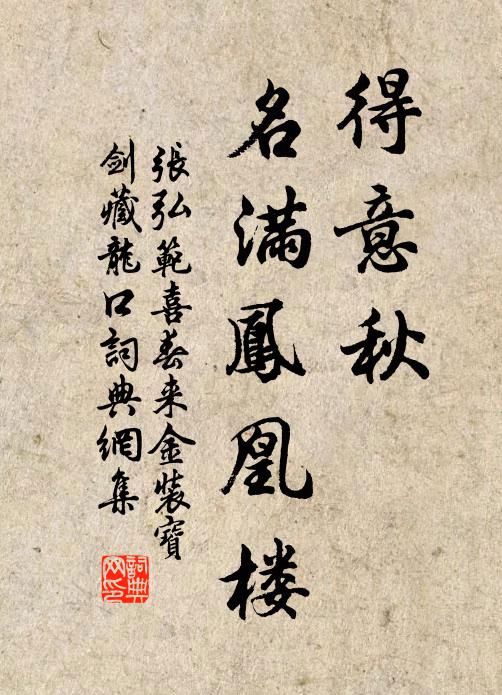 得意秋
名满鳳凰楼
張弘範喜春来金装寶
剑藏龍口詞典網集
詞典网印